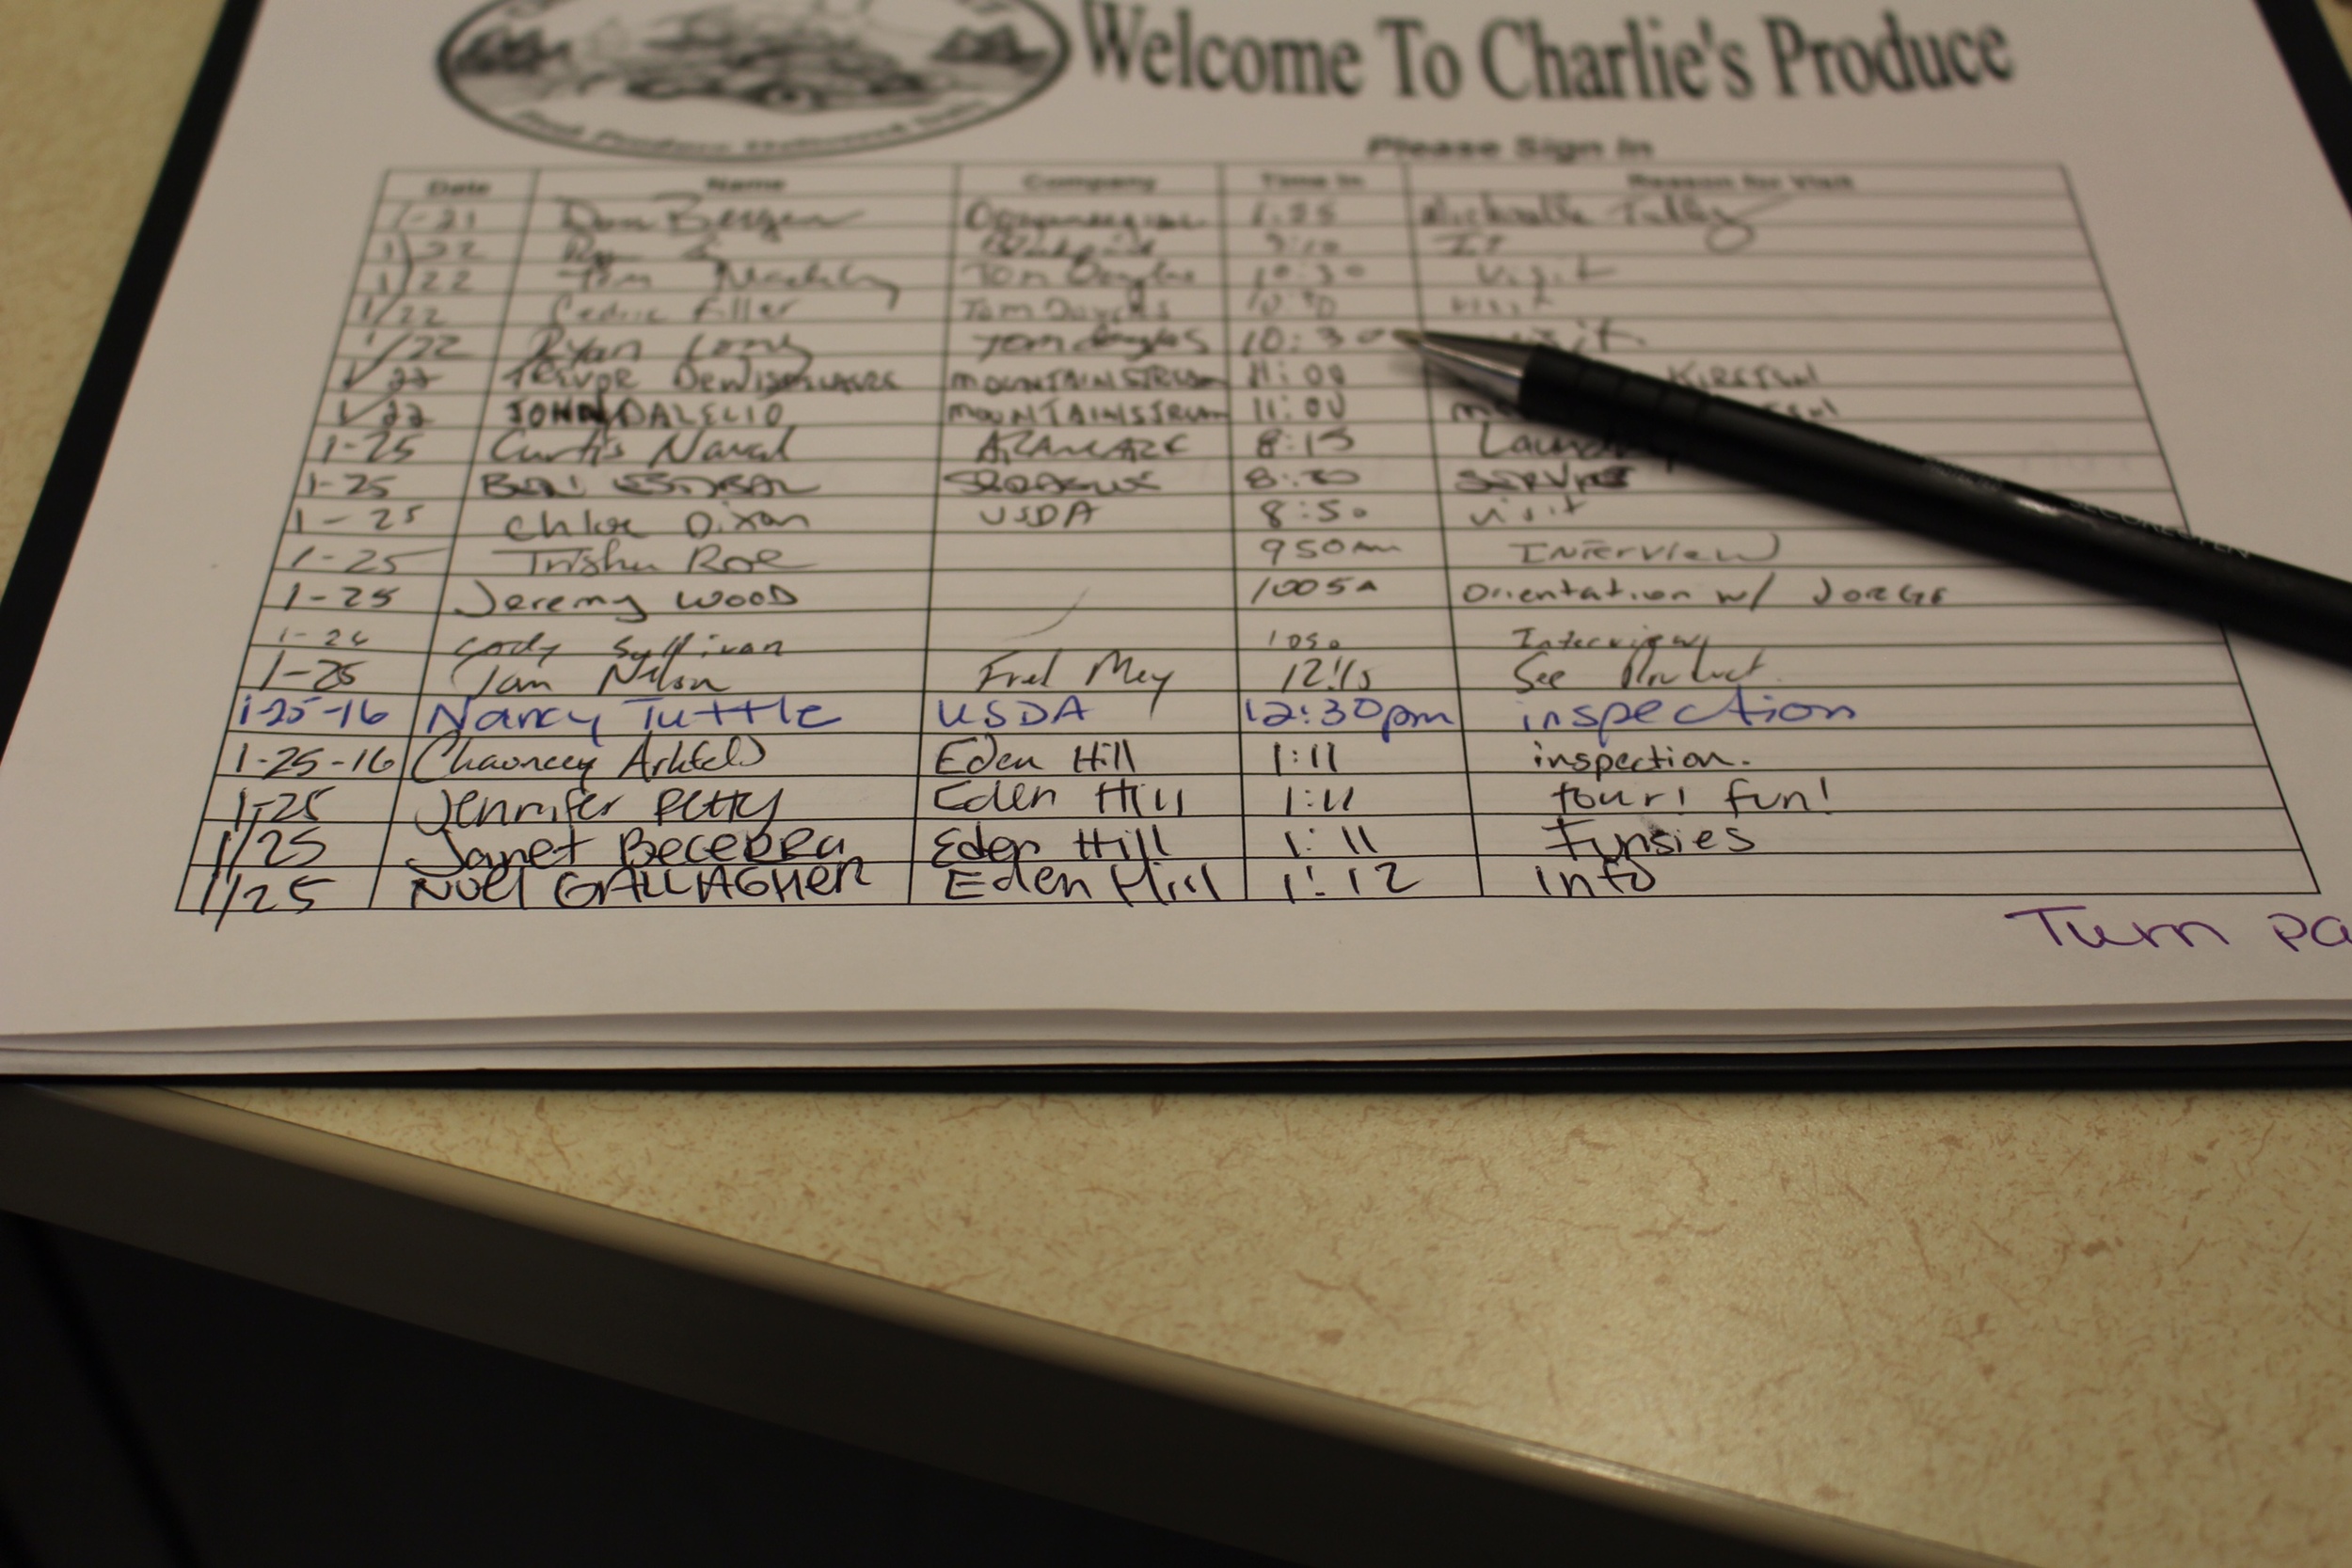 Welcome To Charlie's Produce
Please Sign In
Date Name Company Time In Reason for Visit
1-21 Dan Bergen 1:25
1/22 IT
1/22 Tom Tom Douglas 10:30 visit
1/22 Cedric Filler Tom Douglas 10:30 visit
1/22 Ryan Long Tom Douglas 10:30
1/22 TREVOR MOUNTAINSTREAM 11:00 KIRSTEN
1/22 JOHN DALELIO MOUNTAINSTREAM 11:00
1-25 Curtis Naval ARAMARK 8:15
1-25 8:20 SERVICE
1-25 Chloe Dixon USDA 8:50 visit
1-25 Trisha Roe 950am INTERVIEW
1-25 Jeremy WOOD 1005A Orientation w/ JORGE
Cody Sullivan 1050 Interview
1-25 Nelson Fred Mey 12:15 See Product
1-25-16 Nancy Tuttle USDA 12:30pm inspection
1-25-16 Chauncey Eden Hill 1:11 inspection.
1-25 Jennifer Petty Eden Hill 1:11 tour! fun!
1/25 Janet Becerra Eden Hill 1:11 Funsies
1/25 NOEL GALLAGHER Eden Hill 1:12 info
Turn